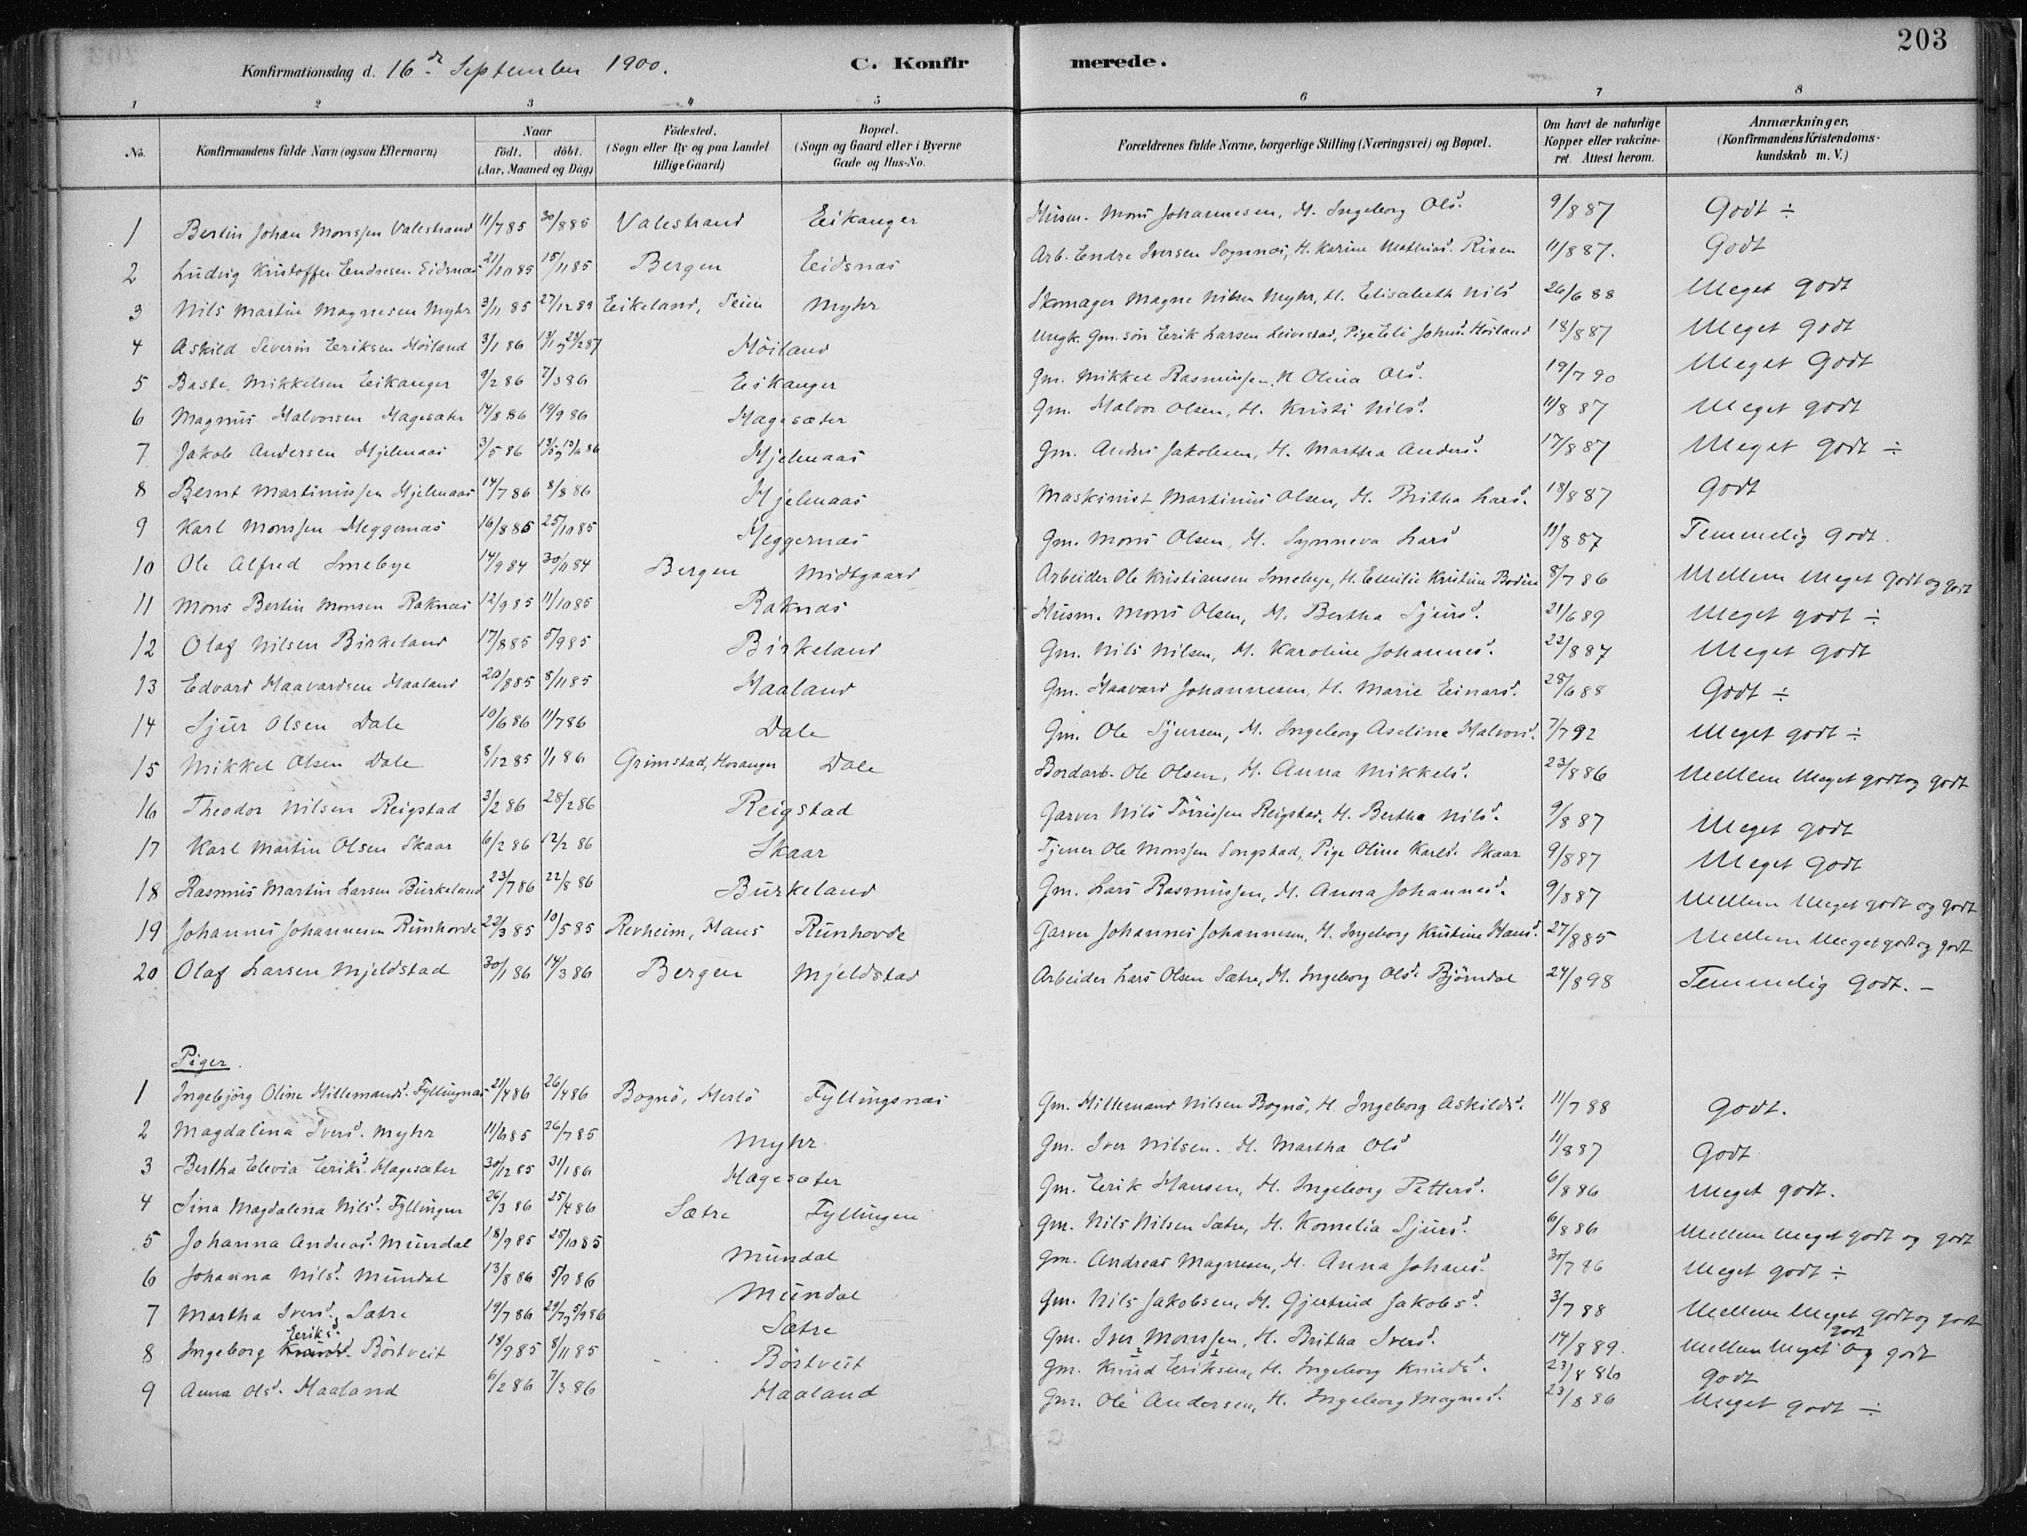 203
Konfirmationsdag d. 16de September 1900. C. Konfirmerede.
1 2 3 4 5 6 7 8
No. Konfirmandens fulde Navn (ogsaa Efternavn) Naar födt. döbt. (Aar, Maaned og Dag) Födested. (Sogn eller By og paa Landet tillige Gaard) Bopæl. (Sogn og Gaard eller i Byerne Gade og Hus-No. Forældrenes fulde Navne, borgerlige Stilling (Næringsvei) og Bopæl. Om havt de naturlige Kopper eller vakcineret. Attest herom. Anmærkninger, (Konfirmandens Kristendomskundskab m. V.)
1 Bertin Johan Monssen Valestrand 11/7 85 30/8 85 Valestrand Eikanger Husm. Mons Johannesen, H. Ingeborg Olsd. 9/8 87 Godt ÷
2 Ludvig Kristoffer Endresen Eidsnæs 21/10 85 15/11 85 Bergen Eidsnæs Arb. Endre Iversen Sognnæs, H. Karine Mathiasd. Risen 11/8 87. Godt
3 Nils Martin Magnesen Myhr 3/11 85 27/12 89 Eikeland, Seim Myhr Skomager Magne Nilsen Myhr, H. Elisabeth Nilsd 26/6 88 Meget godt
4 Askild Severin Eriksen Höiland 3/1 86 13/1 og 23/2 87 Höiland Ungk. Gm. sön Erik Larsen Leivestad, Pige Eli Johnsd. Höiland 18/8 87 Meget godt
5 Baste Mikkelsen Eikanger 9/2 86 7/3 86 Eikanger Gm. Mikkel Rasmussen, H. Olina Olsd. 19/7 90 Meget Godt
6 Magnus Halvorsen Hagesæter 14/8 86 19/9 86 Hagesæter Gm. Halvor Olsen, H. Kristi Nilsd. 11/8 87 Meget godt
7 Jakob Andersen Hjelmaas 3/5 86 13/5 og 13/6 86 Hjelmaas Gm. Anders Jakobsen, H. Martha Andersd. 17/8 87 Meget godt ÷
8 Bernt Martinussen Hjelmaas 14/7 86 8/8 86 Hjelmaas Maskinist Martinus Olsen, H. Britha Larsd. 18/8 87 Godt
9 Karl Monssen Heggernæs 16/8 85 25/10 85 Heggernæs Gm. Mons Olsen, H. Synneva Larsd 11/8 87 Temmelig godt.
10 Ole Alfred Smebye 14/9 84 30/11 84 Bergen Midtgaard Arbeider Ole Kristiansen Smebye, H. Emilie Kristine Bodine 8/7 86 Mellem Meget godt og godt
11 Mons Bertin Monsen Raknæs 12/9 85 11/10 85 Raknæs Husm. Mons Olsen, H. Bertha Sjursd. 21/6 89 Meget godt ÷
12 Olaf Nilsen Birkeland 17/8 85 5/9 85 Birkeland Gm. Nils Nilsen, H. Karoline Johannesd. 22/8 87 Meget godt
13 Edvard Haavardsen Haaland 20/8 85 8/11 85 Haaland Gm. Haavard Johannesen, H. Marie Einarsd. 28/6 88 Godt ÷
14 Sjur Olsen Dale 10/6 86 11/7 86 Dale Gm. Ole Sjursen, H. Ingeborg Aselina Halvorsd. 7/7 92 Meget godt ÷
15 Mikkel Olsen Dale 8/12 85 1/1 86 Grimstad, Hosanger Dale Bordarb. Ole Olsen, H. Anna Mikkelsd. 23/8 86 Mellem Meget godt og godt
16 Theodor Nilsen Reigstad 3/2 86 28/2 86 Reigstad Garver Nils Törrissen Reigstad, H. Bertha Nilsd. 9/8 87 Meget godt
17 Karl Martin Olsen Skaar 6/2 86 12/2 86 Skaar Tjener Ole Monssen Songstad, Pige Oline Karlsd. Skaar 9/8 87 Meget Godt
18 Rasmus Martin Larsen Burkeland 23/7 86 22/8 86 Burkeland Gm. Lars Rasmussen, H. Anna Johannesd. 9/8 87 Mellem Meget godt og godt
19 Johannes Johannesen Runhovde 22/3 85 10/5 85 Revheim, Haus Runhovde Garver Johannes Johannesen, H. Ingeborg Kristine Hansd. 27/8 85 Mellem Meget godt og godt
20 Olaf Larsen Mjeldstad 30/1 86 14/3 86 Bergen Mjeldstad Arbeider Lars Olsen Sætre, H. Ingeborg Olsd. Björndal 24/8 98 Temmelig Godt. –
Piger.
1 Ingebjörg Oline Hillemandsd. Fyllingnæs 21/4 86 26/4 86 Bognö, Herlö Fyllingsnæs Gm. Hillemand Nilsen Bognö, H. Ingeborg Askildsd. 11/7 88 Godt.
2 Magdalena Iversd. Myhr 11/6 85 26/7 85 Myhr Gm. Iver Nilsen. H. Martha Olsd 11/8 87 Godt
3 Bertha Elevia Eriksd. Hagesæter 30/12 85 31/1 86 Hagesæter Gm. Erik Hansen, H. Ingeborg Pettersd. 6/8 86 Meget godt.
4 Sina Magdalena Nilsd. Fyllingen 26/3 86 25/4 86 Sætre Fyllingen Gm. Nils Nilsen Sætre, H. Kornelia Sjursd. 6/8 86 Mellem Meget godt og godt
5 Johanna Andreasd. Mundal 18/9 85 25/10 85 Mundal Gm. Andreas Magnesen, H. Anna Johansd. 30/7 86 Meget godt ÷
6 Johanna Nilsd. Mundal 13/8 86 5/9 86 Mundal Gm. Nils Jakobsen, H. Gjertrud Jakobsd. 3/7 88 Mellem Meget godt og godt
7 Martha Iversd. Sætre 19/7 86 29/7 og 5/9 86 Sætre Gm. Iver Monssen, H. Britha Iversd. 14/8 89. Mellem Meget godt og godt
8 Ingeborg Eriksd. Böstveit 18/9 85 8/11 85 Böstveit Gm. Knud Eriksen, H. Ingeborg Knudsd. 23/8 86 Godt
9 Anna Olsd. Haaland 6/2 86 7/3 86 Haaland Gm. Ole Andersen, H. Ingeborg Magnesd. 23/8 86 Meget godt ÷